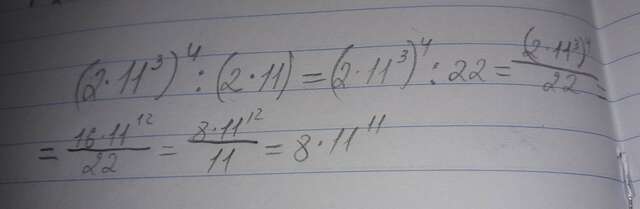 (2·11³)⁴:(2·11)=(2·11³)⁴:22=(2·11³)⁴/22=
=16·11¹²/22=8·11¹²/11=8·11¹¹